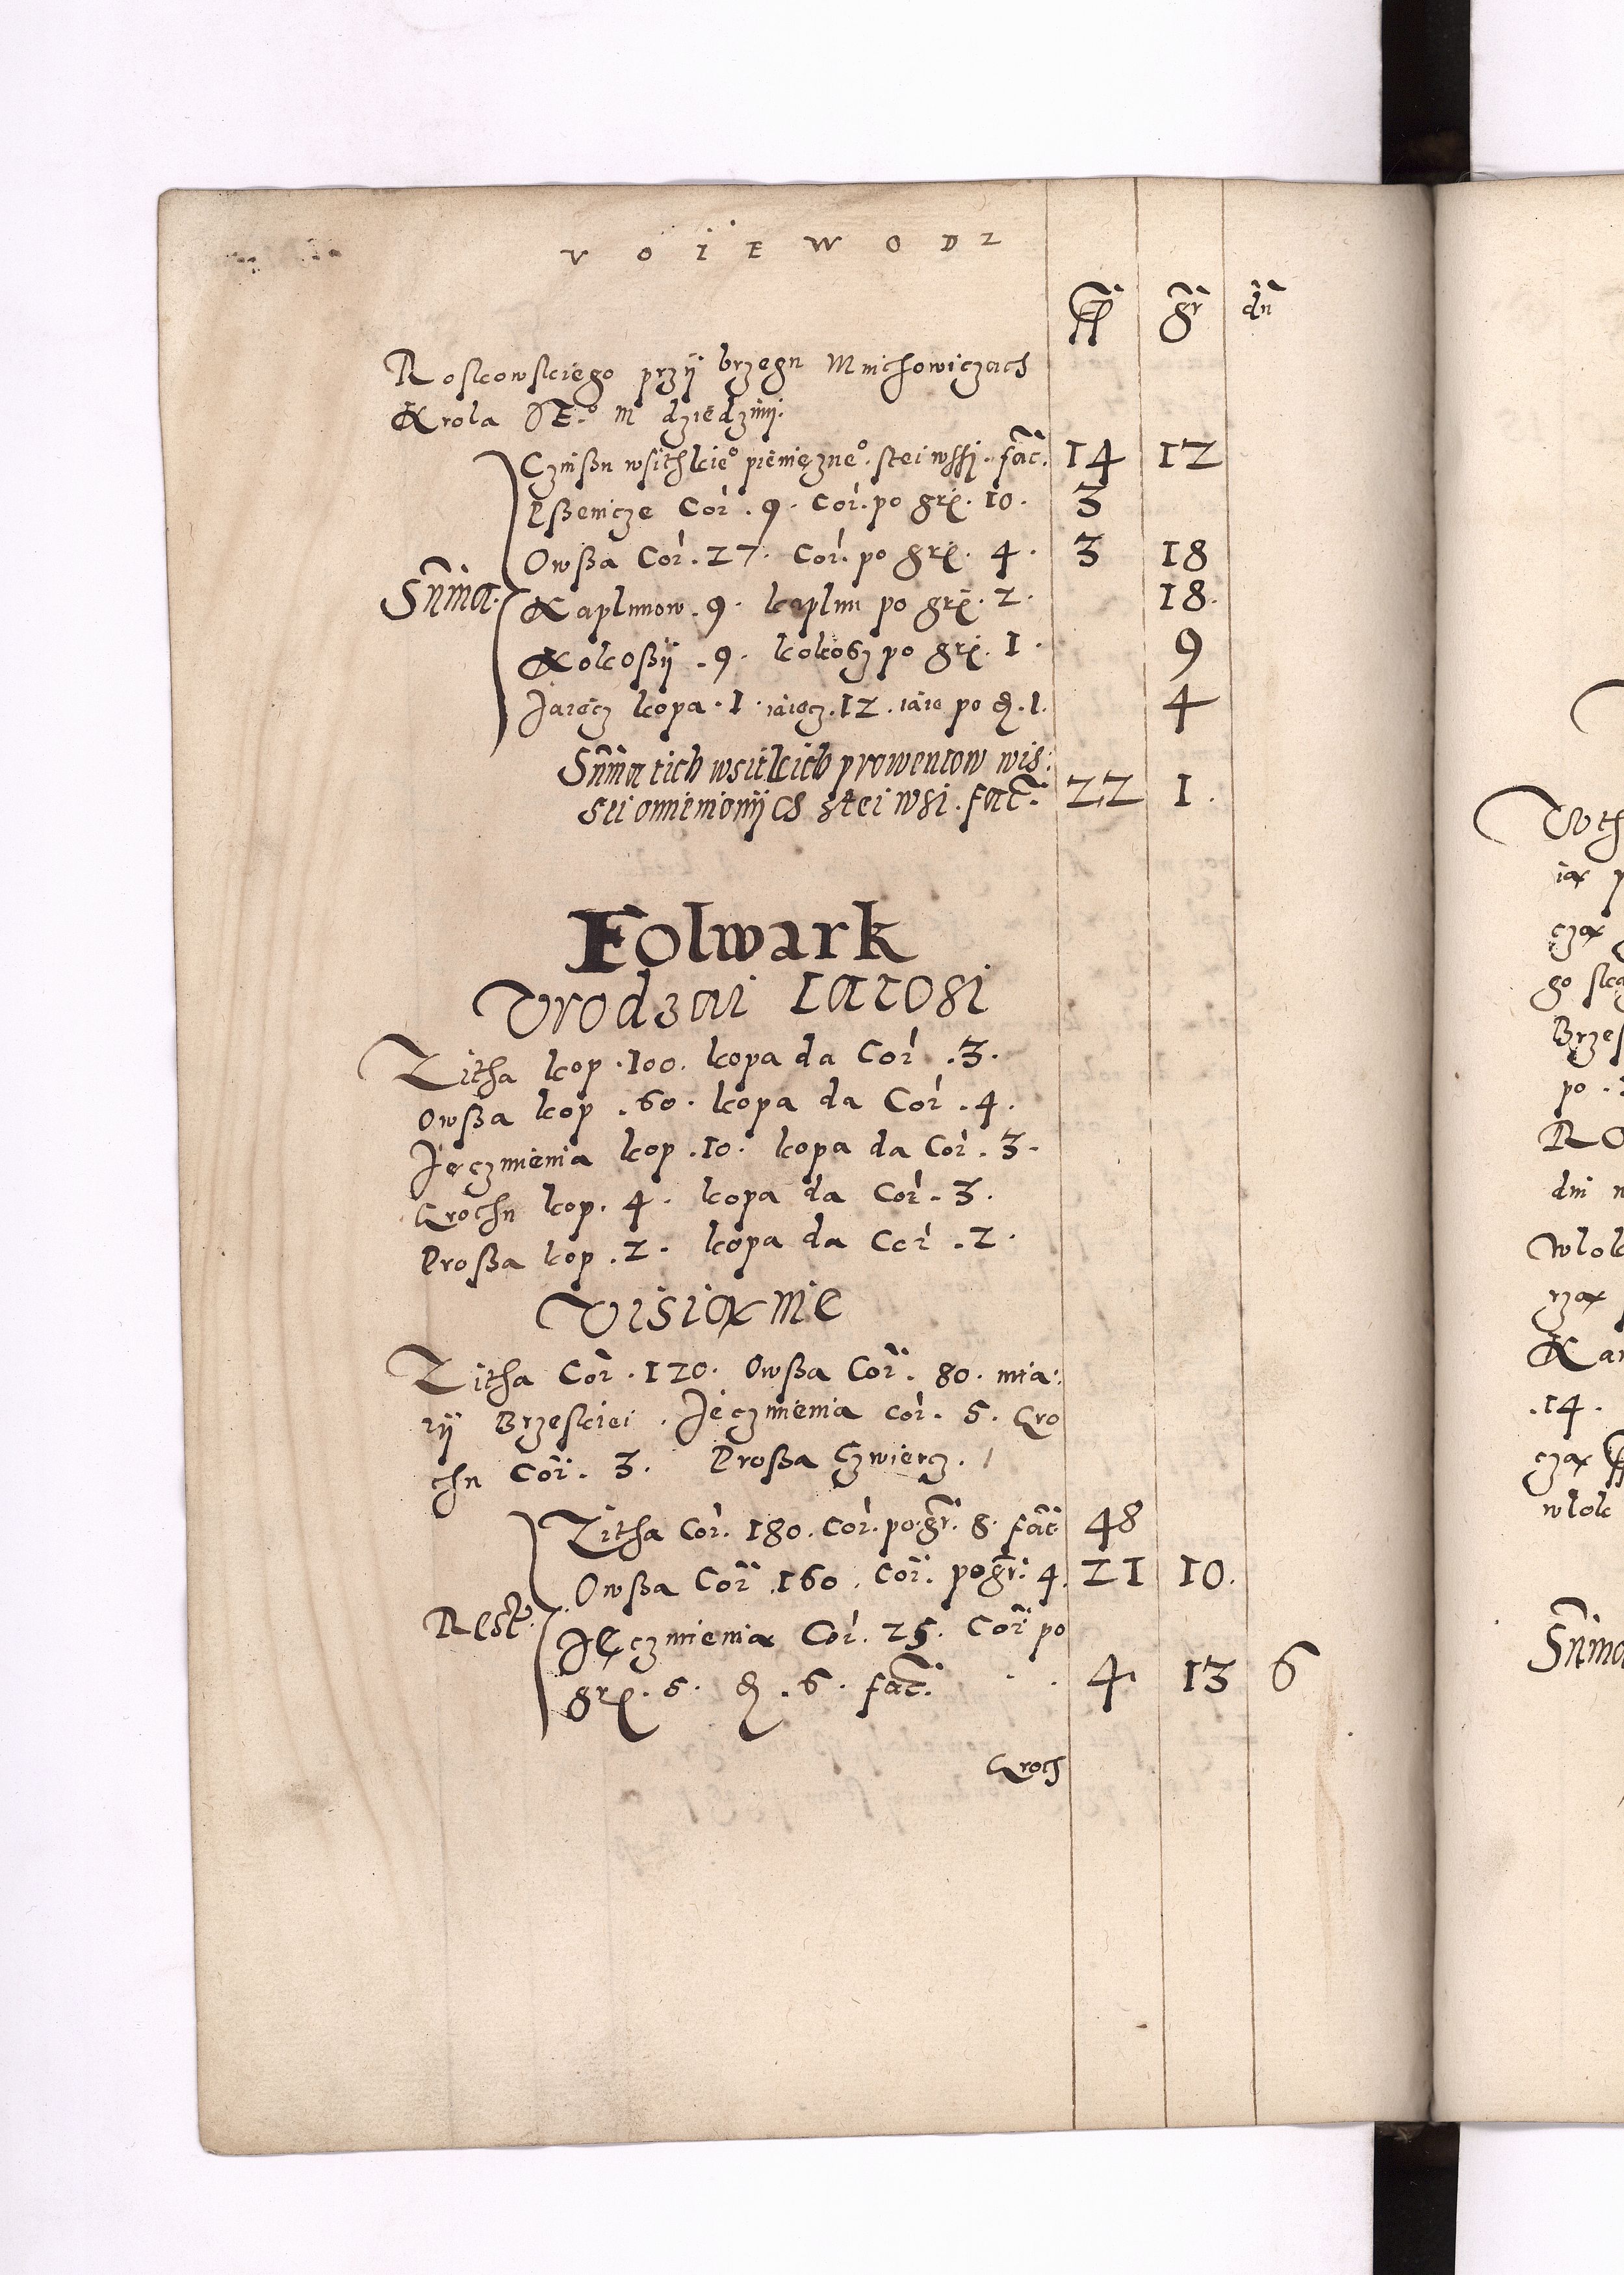 V O I E W O D Z
gr dn
Roskowskiego przÿ brzegu Mnichowiczach
Krola JE.o M dziedzinÿ.
Czinßu wsithkieo pienięzneo. stei wssi. fac. 14 12
Pßenicze Cor. 9. Cor. po grx. 10. 3
Owßa Cor. 27. Cor. po grx. 4. 3 18
Suma. Kaplunow. 9. kaplun po grx. 2. 18.
Kokoßÿ. 9. kokoß po grx. 1. 9
Jaiecz kopa. 1. iaiecz. 12. iaie po d. 1. 4
Suma tich wsitkich prowentow wis:
sei omienionÿch stei wsi. fac. 22 1.
Folwark
Vrodzai latosi
Zitha kop. 100. kopa da Cor. 3.
Owßa kop. 60. kopa da Cor. 4.
Jęczmienia kop. 10. kopa da Cor. 3.
Grochu kop. 4. kopa da Cor. 3.
Proßa kop. 2. kopa da Cor. 2.
Visianie
Zitha Cor. 120. Owßa Cor. 80. mia:
rÿ Brzeskiei. Jęczmienia cor. 5. Gro
chu Cor. 3. Proßa Czwiercz. 1
Zitha Cor. 180. Cor. po. gr. 8. fac. 48
Owßa Cor. 160. Cor. po gr. 4. 21 10.
Rest. Jęczmienia Cor. 25. Cor po
grx. 5. d. 6. fac. 4 13 6
Groch